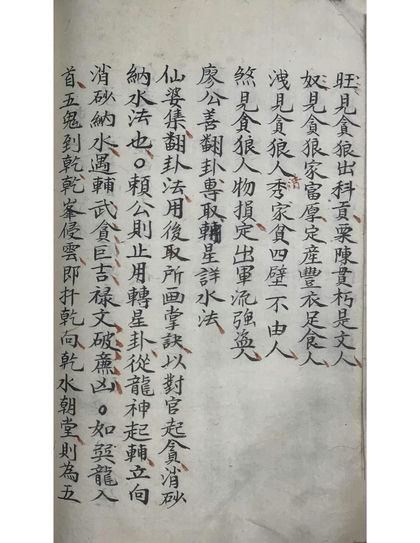 旺見貪狼出科貢粟陳貫朽是文人
奴見貪狼家富厚定產豐衣足食人
洩見貪狼人秀家貧四壁不由人
清
煞見貪狼人物損定出軍流強盜人
廖公善翻卦專取輔星詳水法
仙婆集翻卦法用後取所画掌訣以對官起貪消砂
納水法也。賴公則止用轉星卦從龍神起輔立向
消砂納水遇輔武貪巨吉禄文破廉凶。如巽龍入
首五鬼到乾乾峯侵雲即扦乾向乾水朝堂則為五